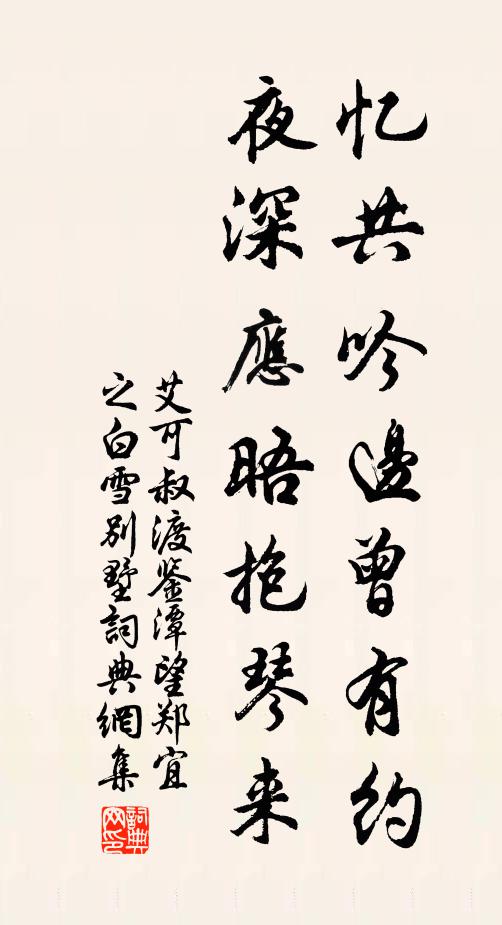 忆共吟邊曾有约
夜深應晤抱琴来
艾可叔渡鉴潭望郑宜
之白雪别墅詞典網集
詞典网印